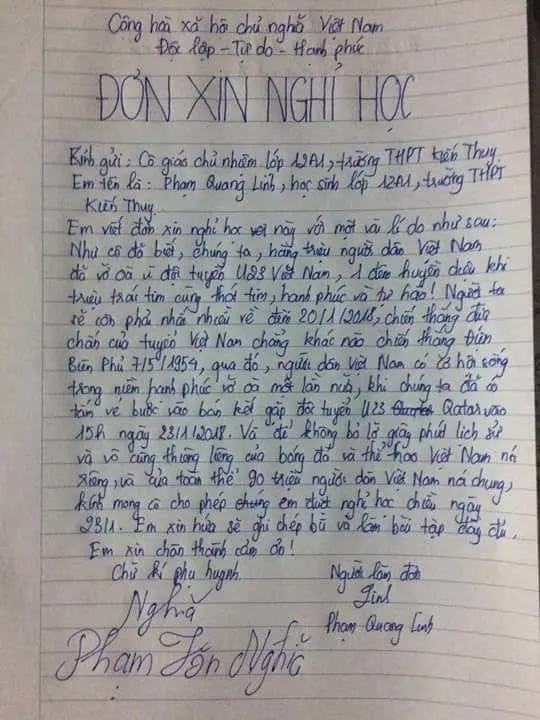 Cộng hoà xã hội chủ nghĩa Việt Nam
Độc lập - Tự do - Hạnh phúc
ĐƠN XIN NGHỈ HỌC
Kính gửi: Cô giáo chủ nhiệm lớp 12A1, trường THPT Kiến Thụy
Em tên là: Phạm Quang Linh, học sinh lớp 12A1, trường THPT
Kiến Thụy
Em viết đơn xin nghỉ học này với một vài lí do như sau:
Như cô đã biết, chúng ta, hàng triệu người dân Việt Nam
đã vỡ oà vì đội tuyển U23 Việt Nam, 1 đêm huyền diệu khi
triệu trái tim cùng thót tim, hạnh phúc và tự hào! Người ta
sẽ còn phải nhắc nhiều về đêm 20/1/2018, chiến thắng địa
chấn của tuyển Việt Nam chẳng khác nào chiến thắng Điện
Biên Phủ 7/5/1954, qua đó, người dân Việt Nam có cơ hội sống
trong niềm hạnh phúc vỡ oà một lần nữa, khi chúng ta đã có
tấm vé bước vào bán kết gặp đội tuyển U23 Qatar vào
15h ngày 23/1/2018. Và để không bỏ lỡ giây phút lịch sử
và vô cùng thiêng liêng của bóng đá và thể thao Việt Nam nói
riêng, và của toàn thể 90 triệu người dân Việt Nam nói chung,
kính mong cô cho phép em được nghỉ học chiều ngày
23/1. Em xin hứa sẽ ghi chép bù và làm bài tập đầy đủ.
Em xin chân thành cảm ơn!
Chữ kí phụ huynh
Người làm đơn
Nghĩa
Linh
Phạm Quang Linh
Phạm Văn Nghĩa